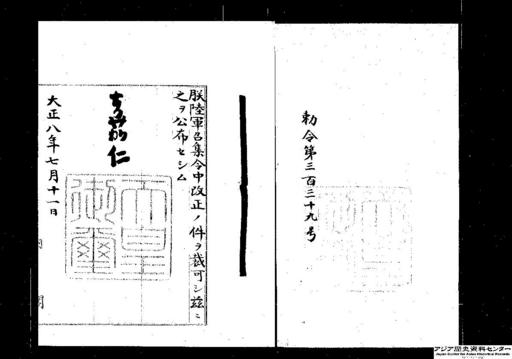 勅令第三百三十九号
朕陸軍召集令中改正ノ件ヲ裁可シ茲ニ
之ヲ公布セシム
嘉仁
天皇御璽
大正八年七月十一日
内閣
アジア歴史資料センター
Japan Center for Asian Historical Records